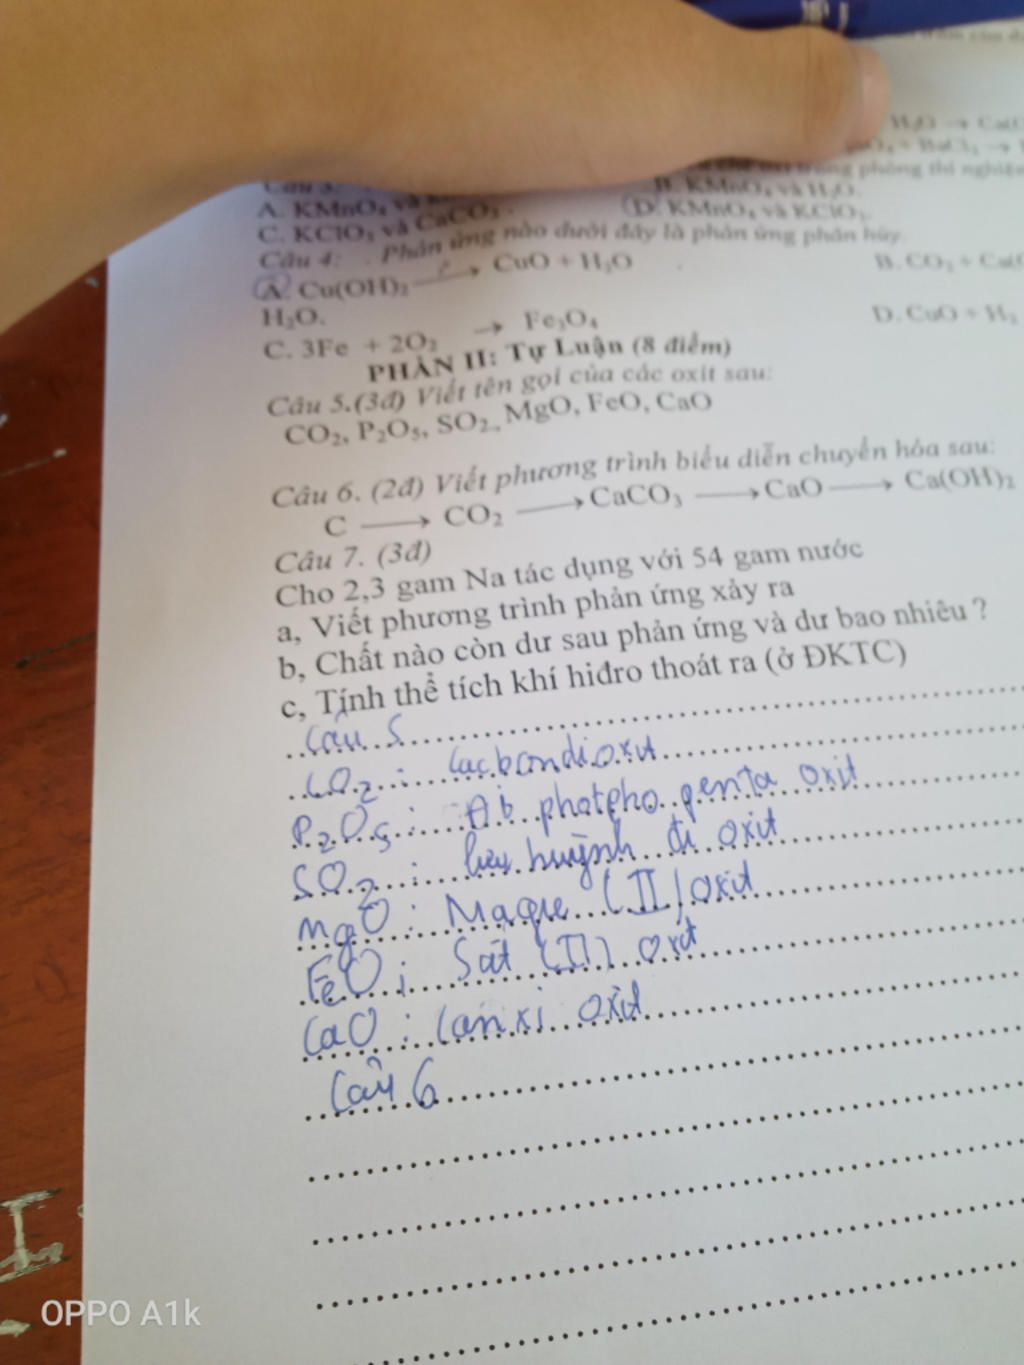 H₂O → Ca(
BaCl₂ →
trong phòng thí nghiệm
Câu 3:
A. KMnO₄ và
B. KMnO₄ và H₂O.
C. KClO₃ và CaCO₃.
D. KMnO₄ và KClO₃.
Câu 4: Phản ứng nào dưới đây là phản ứng phân hủy.
A. Cu(OH)₂ → CuO + H₂O
B. CO₂ + Ca(
H₂O.
C. 3Fe + 2O₂ → Fe₃O₄
D. CuO + H₂
PHẦN II: Tự Luận (8 điểm)
Câu 5.(3đ) Viết tên gọi của các oxit sau:
CO₂, P₂O₅, SO₂, MgO, FeO, CaO
Câu 6. (2đ) Viết phương trình biểu diễn chuyển hóa sau:
C → CO₂ → CaCO₃ → CaO → Ca(OH)₂
Câu 7. (3đ)
Cho 2,3 gam Na tác dụng với 54 gam nước
a, Viết phương trình phản ứng xảy ra
b, Chất nào còn dư sau phản ứng và dư bao nhiêu ?
c, Tính thể tích khí hiđro thoát ra (ở ĐKTC)
Câu 5
CO₂ : cacbondioxit
P₂O₅ : photpho penta oxit
SO₂ : lưu huỳnh đi oxit
MgO : Magie (II) oxit
FeO : Sắt (II) oxit
CaO : Canxi oxit
Câu 6
OPPO A1k